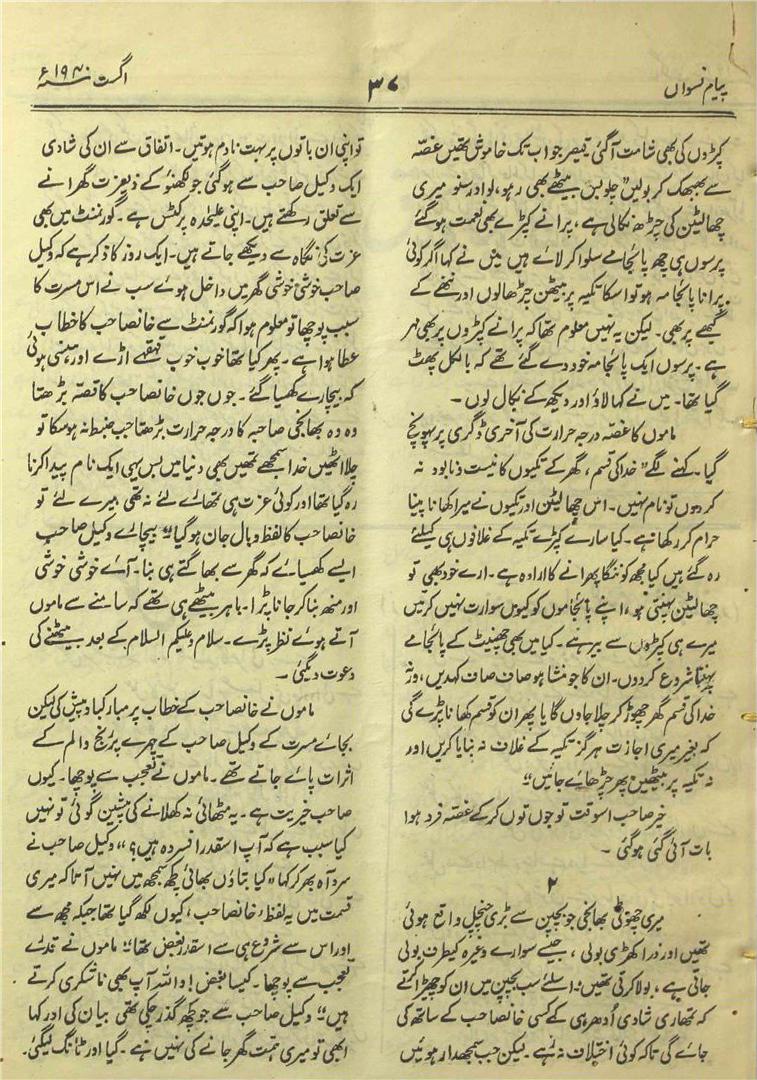 پیام نسواں
۳۷
اگست سنہ ۱۹۴۰ء
کپڑوں کی بھی شامت آگئی قیصر جو اب تک خاموش تھیں غصّہ
سے بھبھک کر بولیں "چلو بس بیٹھے بھی رہو، لو اور سنو میری
چھالٹین کی چڑھ نکالی ہے، پرانے کپڑے بھی نعمت ہو گئے
پرسوں ہی چھ پائجامے سلوا کر لائے ہیں میں نے کہا اگر کوئی
پرانا پائجامہ ہو تو اسکا تکیہ پر بیٹھن چڑھالوں اور ننھے کے
گبھے پر بھی۔ لیکن یہ نہیں معلوم تھا کہ پرانے کپڑوں پر بھی مہر
ہے۔ پرسوں ایک پائجامہ خود دے گئے تھے کہ بالکل پھٹ
گیا تھا۔ میں نے کہا لاؤ اور دیکھ کے نکال لوں۔
ماموں کا غصّہ درجہ حرارت کی آخری ڈگری پر پہونچ
گیا۔ کہنے لگے "خدا کی قسم، گھر کے تکیوں کا نیست و نابود نہ
کر دوں تو نام نہیں۔ اس چھالٹین اور تکیوں نے میرا کھانا پینا
حرام کر رکھا ہے۔ کیا سارے کپڑے تکیہ کے غلافوں ہی کیلئے
رہ گئے ہیں کیا مجھ کو ننگا پھرانے کا ارادہ ہے۔ ارے خود بھی تو
چھالٹین پہنتی ہو، اپنے پائجاموں کو کیوں سوارت نہیں کرتیں
میرے ہی کپڑوں سے بیر ہے۔ کیا میں بھی چھینٹ کے پائجامے
پہننا شروع کردوں۔ ان کا جو منشا ہو صاف صاف کہدیں، ورنہ
خدا کی قسم گھر چھوڑ کر چلا جاوں گا یا پھر ان کو قسم کھانا پڑے گی
کہ بغیر میری اجازت ہرگز تکیہ کے غلاف نہ بنایا کریں اور
نہ تکیہ پر بیٹھن پھر چڑھائے جائیں"
خیر صاحب اسوقت تو جوں توں کر کے غصّہ فرد ہوا
بات آئی گئی ہوگئی۔
۲
میری چھوٹی بھانجی جو بچپن سے بڑی چنچل واقع ہوئی
تھیں اور ذرا کھڑی بولی، جیسے سوارے وغیرہ کیطرف بولی
جاتی ہے، بولا کرتی تھیں۔ اسلئے سب بچپن میں ان کو چھیڑا کتے
کہ تمھاری شادی اُدھر ہی کے کسی خانصاحب کے ساتھ کی
جائے گی تاکہ کوئی اختلاف نہ رہے۔ لیکن جب سمجھدار ہوئیں
تو اپنی ان باتوں پر بہت نادم ہوتیں۔ اتفاق سے ان کی شادی
ایک وکیل صاحب سے ہو گئی جو لکھنؤ کے ذیعزت گھرانے
سے تعلق رکھتے ہیں۔ اپنی علیحدہ پرکٹس ہے۔ گورنمنٹ میں بھی
عزت کی نگاہ سے دیکھے جاتے ہیں۔ ایک روز کا ذکر ہے کہ وکیل
صاحب خوشی خوشی گھر میں داخل ہوئے سب نے اس مسرت کا
سبب پوچھا تو معلوم ہوا کہ گورنمنٹ سے خانصاحب کا خطاب
عطا ہوا ہے۔ پھر کیا تھا خوب خوب قہقہے اڑے اور ہنسی ہوئی
کہ بیچارے کھسیا گئے۔ جوں جوں خانصاحب کا قصّہ بڑھتا
وہ وہ بھانجی صاحبہ کا درجہ حرارت بڑھتا جب ضبط نہ ہو سکا تو
چلا اٹھیں خدا سمجھے تمھیں بھی دنیا میں بس یہی ایک نام پیدا کرنا
رہ گیا تھا اور کوئی عزت ہی تمھارے لئے نہ تھی، میرے لئے تو
خانصاحب کا لفظ وبال جان ہو گیا" بیچارے وکیل صاحب
ایسے کھسیائے کہ گھر سے بھاگتے ہی بنا۔ آئے خوشی خوشی
اور منھ بنا کر جانا پڑا۔ باہر بیٹھے ہی تھے کہ سامنے سے ماموں
آتے ہوئے نظر پڑے۔ سلام وعلیکم السلام کے بعد بیٹھنے کی
دعوت دیگئی۔
ماموں نے خانصاحب کے خطاب پر مبارکباد پیش کی لیکن
بجائے مسرت کے وکیل صاحب کے چہرے پر رنج والم کے
اثرات پائے جاتے تھے۔ ماموں نے تعجب سے پوچھا۔ کیوں
صاحب خیریت ہے۔ یہ مٹھائی نہ کھلانے کی پیشین گوئی تو نہیں
کیا سبب ہے کہ آپ اسقدر افسردہ ہیں؟" وکیل صاحب نے
سرد آہ بھر کر کہا "کیا بتاؤں بھائی کچھ سمجھ میں نہیں آتا کہ میری
قسمت میں یہ لفظ، خانصاحب، کیوں لکھ گیا تھا جبکہ مجھ سے
اور اس سے شروع ہی سے اسقدر بغض تھا" ماموں نے قدرے
تعجب سے پوچھا۔ کیسا بغض! واللہ آپ بھی ناشکری کرتے
ہیں" وکیل صاحب سے جو کچھ گذر چکی تھی بیان کی اور کہا
ابھی تو میری ہمت گھر جانے کی نہیں ہے۔ گیا اور ٹانگ لیگئی۔